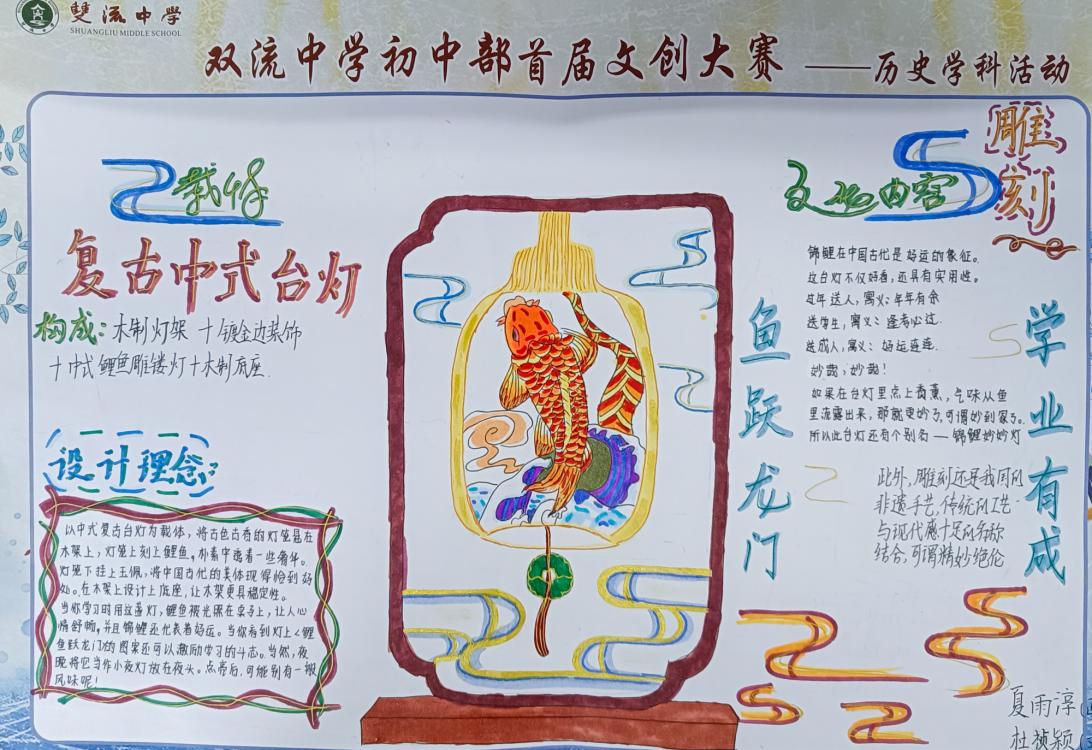 雙流中学
SHUANGLIU MIDDLE SCHOOL
双流中学初中部首届文创大赛 ——历史学科活动
载体
复古中式台灯
构成：木制灯架 + 镀金边装饰
+ 中式鲤鱼雕镂灯 + 木制底座.
设计理念：
以中式复古台灯为载体，将古色古香的灯笼悬在
木架上，灯笼上刻上鲤鱼，朴素中透着一些奢华。
灯笼下挂上玉佩，将中国古代的美体现得恰到好
处。在木架上设计上底座，让木架更具稳定性。
当你学习时用这盏灯，鲤鱼被光照在桌子上，让人心
情舒畅，并且锦鲤还代表着好运。当你看到灯上《鲤
鱼跃龙门》的图案还可以激励学习的斗志。当然，夜
晚将它当作小夜灯放在夜头。点亮后，可能别有一般
风味呢！
文化内容
雕刻
锦鲤在中国古代是好运的象征。
这台灯不仅好看，还具有实用性。
过年送人，寓义：年年有余
送学生，寓义：逢考必过.
送成人，寓义：好运连连.
妙哉，妙哉！
如果在台灯里点上香薰，气味从鱼
里流露出来，那就更妙了，可谓妙到家了。
所以此台灯还有个别名 — 锦鲤妙妙灯
此外，雕刻还是我国的
非遗手艺，传统的工艺
与现代感十足的名称
结合，可谓精妙绝伦
鱼跃龙门
学业有成
夏雨淳
杜祯颖